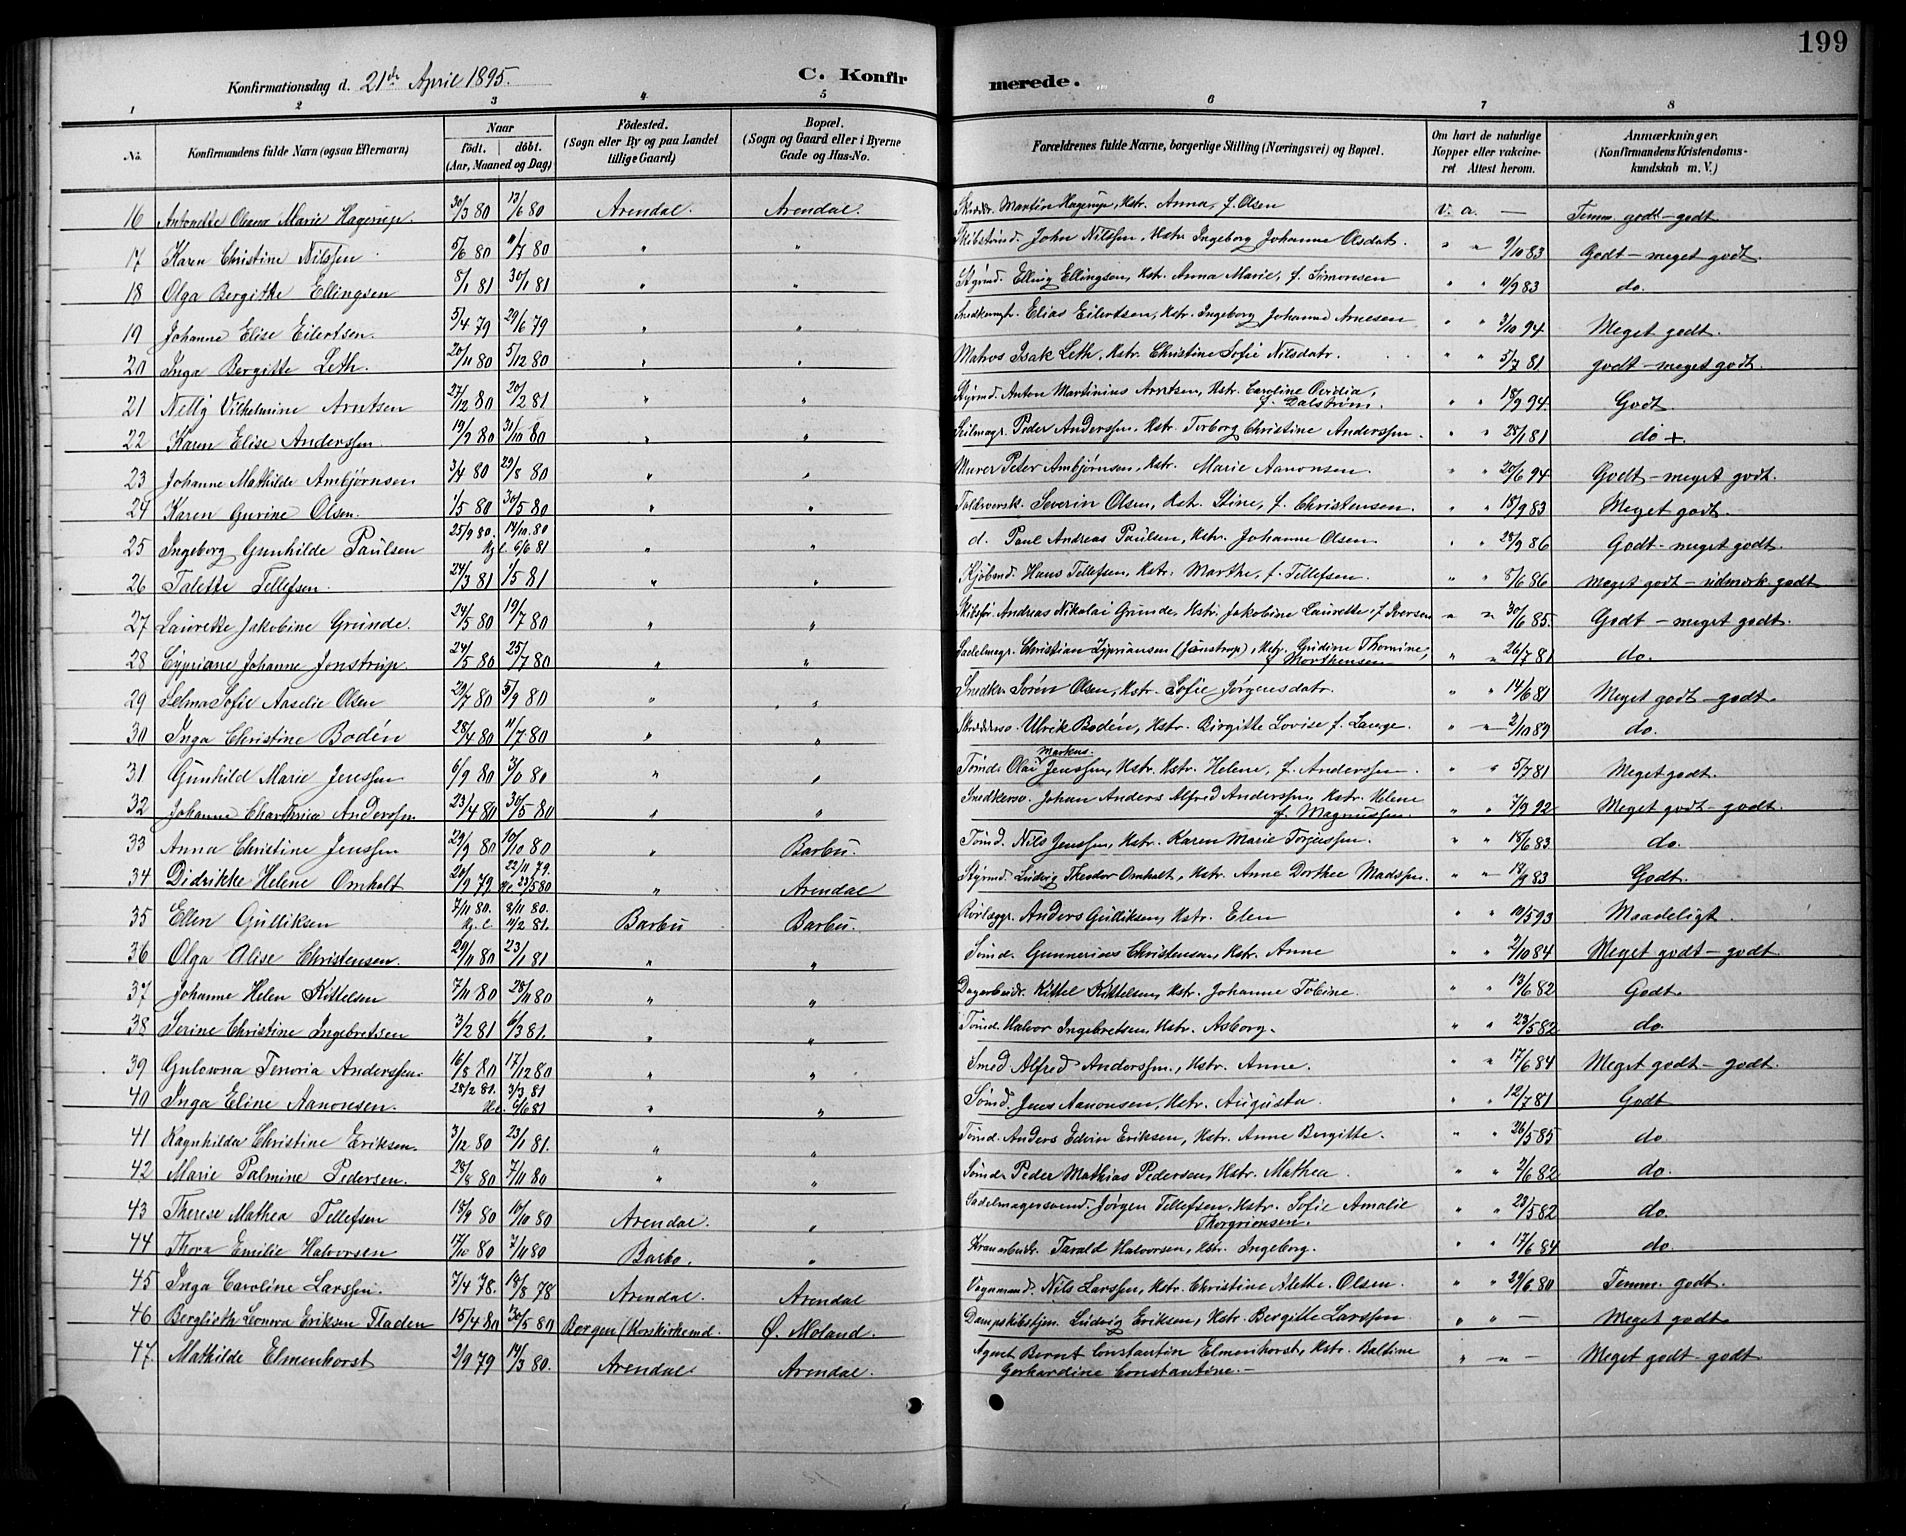 199
Konfirmationsdag d. 21de April 1895.
C. Konfirmerede.
1 2 3 4 5 6 7 8
No. | Konfirmandens fulde Navn (ogsaa Efternavn) | Naar født. døbt. (Aar, Maaned og Dag) | Fødested. (Sogn eller By og paa Landet tillige Gaard) | Bopæl. (Sogn og Gaard eller i Byerne Gade og Hus-No. | Forældrenes fulde Navne, borgerlige Stilling (Næringsvei) og Bopæl. | Om havt de naturlige Kopper eller vakcineret Attest herom. | Anmærkninger. (Konfirmandens Kristendomskundskab m. V.)
16 Antonette Olsena Marie Hagerup. 30/3 80 13/6 80 Arendal. Arendal. Martin Hagerup, Hstr. Anna, f. Olsen v. a. — Temm. godt – godt
17 Karen Christine Nilssen 5/6 80 11/7 80 " " Skibstømd. John Nilssen, Hstr. Ingeborg Johanne Olsdat. " " 9/10 83 Godt – meget godt.
18 Olga Bergithe Ellingsen 8/1 81 30/1 81 " " Styrmd. Elling Ellingsen, Hstr. Anna Marie, f. Simonsen " " 11/9 83 do.
19 Johanne Elise Eilertsen. 5/4 79 29/6 79 " " Elias Eilertsen, Hstr. Ingeborg Johanne Arnesen " " 3/10 94. Meget godt.
20 Inga Bergitte Leth. 20/11 80 5/12 80 " " Matros Isak Leth, Hstr. Christine Sofie Nilsdatr. " " 5/7 81 godt – meget godt.
21 Nelly Vilhelmine Arntsen 27/12 80 20/2 81 " " Styrmd. Anton Martinius Arntsen, Hstr. Caroline f. Dalstrøm. " " 18/9 94. Godt.
22 Karen Elise Anderssen 19/9 80 31/10 80 " " Seilmagr. Peder Anderssen, Hstr. Torborg Christine Anderssen. " " 28/1 81 do +.
23 Johanne Mathilde Ambjørnsen 3/4 80 29/8 80 " " Murer Peter Ambjørnsen, Hstr. Marie Aanonsen. " " 20/6 94 Godt – meget godt.
24 Karen Gurine Olsen. 1/5 80 30/5 80 " " Severin Olsen, Hstr. Stine, f. Christensen. " " 18/9 83 Meget godt.
25 Ingeborg Gunhilde Paulsen 25/9 80. 14/10. 80 6/6 81 " " d. Paul Andreas Paulsen, Hstr. Johanne Olsen " " 28/9 86 Godt – meget godt.
26 Talette Tellefsen. 24/3 81 1/5 81 " " Kjøbmd. Hans Tellefsen, Hstr. Marthe, f. Tellefsen. " " 8/6 86 meget godt – udmærk. godt
27 Laurette Jakobine Grunde. 24/5 80 19/7 80 " " Skibsfør. Andreas Nikolai Grunde, Hstr. Jakobine Laurette, f. Iversen " " 30/6 85. Godt – meget godt.
28 Cypriane Johanne Jonstrup. 24/5 80 25/7 80 " " Sadelmagr. Christian Zypriansen (Jonstrup), Hstr. Gudine Thomine, f. Morthensen " " 26/7 81 do.
29 Selma Sofie Aaselie Olsen 29/7 80 5/9 80 " " Snedkr. Søren Olsen, Hstr. Sofie Jørgensdatr. " " 14/6 81 Meget godt – godt.
30 Inga Christine Bodén 28/4 80 11/7 80 " " Ulrik Bodén, Hstr. Birgitte Lovise f. Lange. " " 2/10 89 do.
31 Gunhild Marie Jenssen 6/9 80 3/10 80 " " Tømd. Olai Markus. Jenssen, Hstr. Hstr. Helene, f. Anderssen " " 5/7 81 Meget godt.
32 Johanne Anderssen 23/4 80 30/5 80 " " Johan Anders Alfred Anderssen, Hstr. Helene f. Magnussen. " " 7/9 92 Meget godt – godt.
33 Anna Christine Jenssen 29/9 80 10/10 80 " Barbu. Tømd. Nils Jenssen, Hstr. Karen Marie Torjussen. " " 18/6 83 do.
34 Didrikke Helene Omholt 20/9 79 23/11 79. 23/5 80 " Arendal Styrmd. Ludvig Theodor Omholt, Hstr. Anne Dorthee Madssen. " " 18/9 83 Godt.
35 Ellen Gulliksen 7/11 80. 8/11 80. 11/2 81. Barbu Barbu. Rørlæggr. Anders Gulliksen, Hstr. Elen " " 10/5 93 Maadeligt.
36 Olga Alise Christensen. 29/11 80 23/1 81 " " Sømd. Gunnerius Christensen, Hstr. Anne " " 2/10 84 Meget godt – godt.
37 Johanne Helen Kittelsen 7/11 80 28/11 80 " " Dagarbeidr. Kittel Kittelsen, Hstr. Johanne Tobine. " " 13/6 82 Godt.
38 Serine Christine Ingebretsen 3/2 81 6/3 81. " " Tømd. Halvor Ingebretsen, Hstr. Asborg. " " 23/5 82 do.
39 Gulowna Tenoria Anderssen. 16/8 80 17/12 80 " " Smed Alfred Anderssen., Hstr. Anne. " " 17/6 84 Meget godt – godt.
40 Inga Eline Aanonsen. 28/2 81. 3/3. 81 6/6 81 " " Sømd. Jens Aanonsen, Hstr. Augusta. " " 12/7 81 Godt
41 Ragnhilda Christine Eriksen. 3/12 80 23/1 81. " " Tømd. Anders Edvin Eriksen, Hstr. Anne Bergitte. " " 26/5 85 do.
42 Marie Palmine Pedersen. 28/8 80 7/11 80 " " Sømd. Peder Mathias Pedersen, Hstr. Mathea " " 2/6 82 do.
43 Therese Mathea Tellefsen 18/9 80 10/10 80 Arendal. " Sadelmagersvend. Jørgen Tellefsen, Hstr. Sofie Amalie Thorgrimsen. " " 23/5 82 do.
44 Thora Emilie Halvorsen 17/10 80 7/11 80 Barbo. " Kranarbeidr. Tarald Halvorsen, Hstr. Ingeborg. " " 17/6 84 do.
45 Inga Caroline Larssen. 7/4 78. 18/8 78 Arendal. Arendal Vognmand. Nils Larssen, Hstr. Christine Alette. Olsen. " " 29/6 80 Temm. godt.
46 Berglioth Lenora Eriksen Fladen 15/4 80 30/5 80 Bergen (Korskirkemd. Ø. Moland. Dampskibstjen. Ludvig Eriksen, Hstr. Bergitte Larssen " " — Meget godt.
47 Mathilde Elmenhorst 2/9 79 14/3 80. Arendal. Arendal. Agent Bernt Constantin Elmenhorst, Hstr. Baltine Gerhardine Constantine. – " " — Meget godt – godt.